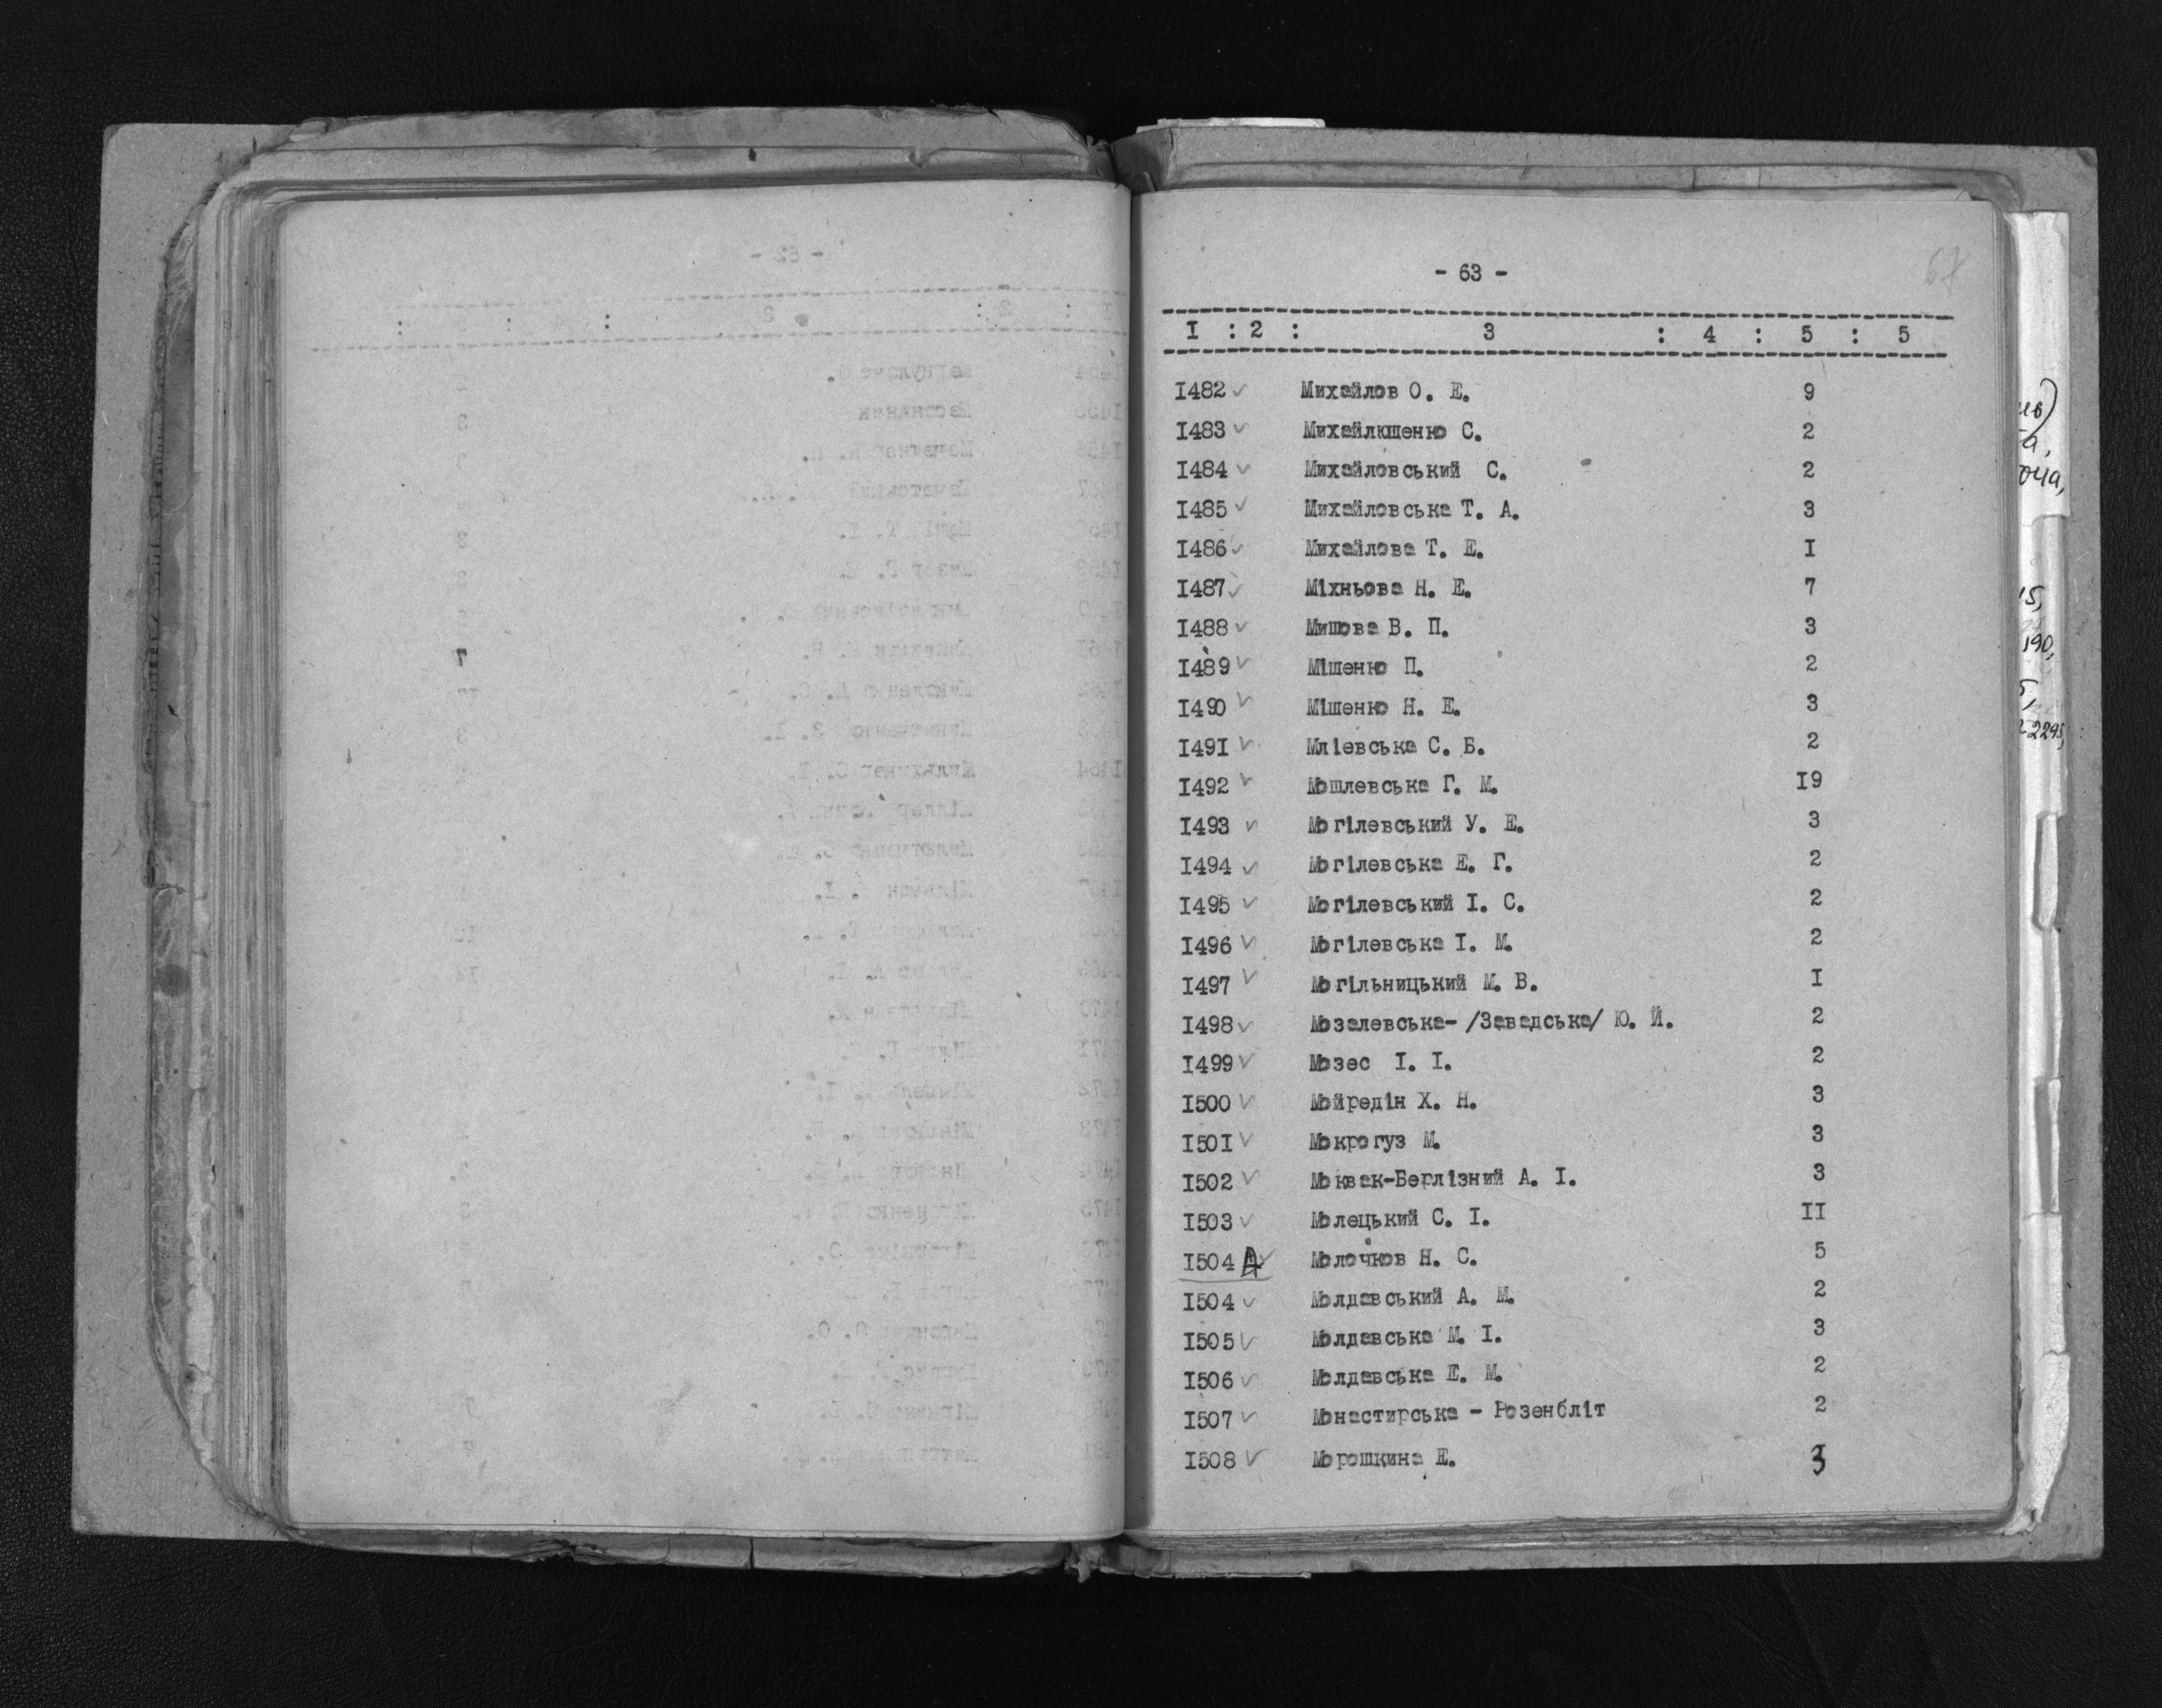 - 63 -
67
I : 2 : 3 : 4 : 5 : 5
I482 ✓ Михайлов О. Е. 9
I483 ✓ Михайлюшенко С. 2
I484 ✓ Михайловський С. 2
I485 ✓ Михайловська Т. А. 3
I486 ✓ Михайлова Т. Е. I
I487 ✓ Міхньова Н. Е. 7
I488 ✓ Мишова В. П. 3
I489 ✓ Мішенко П. 2
I490 ✓ Мішенко Н. Е. 3
I491 ✓ Мліевська С. Б. 2
I492 ✓ Мошлевська Г. М. I9
I493 ✓ Могілевський У. Е. 3
I494 ✓ Могілевська Е. Г. 2
I495 ✓ Могілевський І. С. 2
I496 ✓ Могілевська І. М. 2
I497 ✓ Могільницький М. В. I
I498 ✓ Мозалевська- /Завадська/ Ю. Й. 2
I499 ✓ Мозес І. І. 2
I500 ✓ Мойредін Х. Н. 3
I501 ✓ Мокрогуз М. 3
I502 ✓ Моквак-Берлізний А. І. 3
I503 ✓ Молецький С. І. II
I504 А ✓ Молочков Н. С. 5
I504 ✓ Молдавський А. М. 2
I505 ✓ Молдавська М. І. 3
I506 ✓ Молдавська Е. М. 2
I507 ✓ Монастирська - Розенбліт 2
I508 ✓ Морошкина Е. 3
190,
2295,